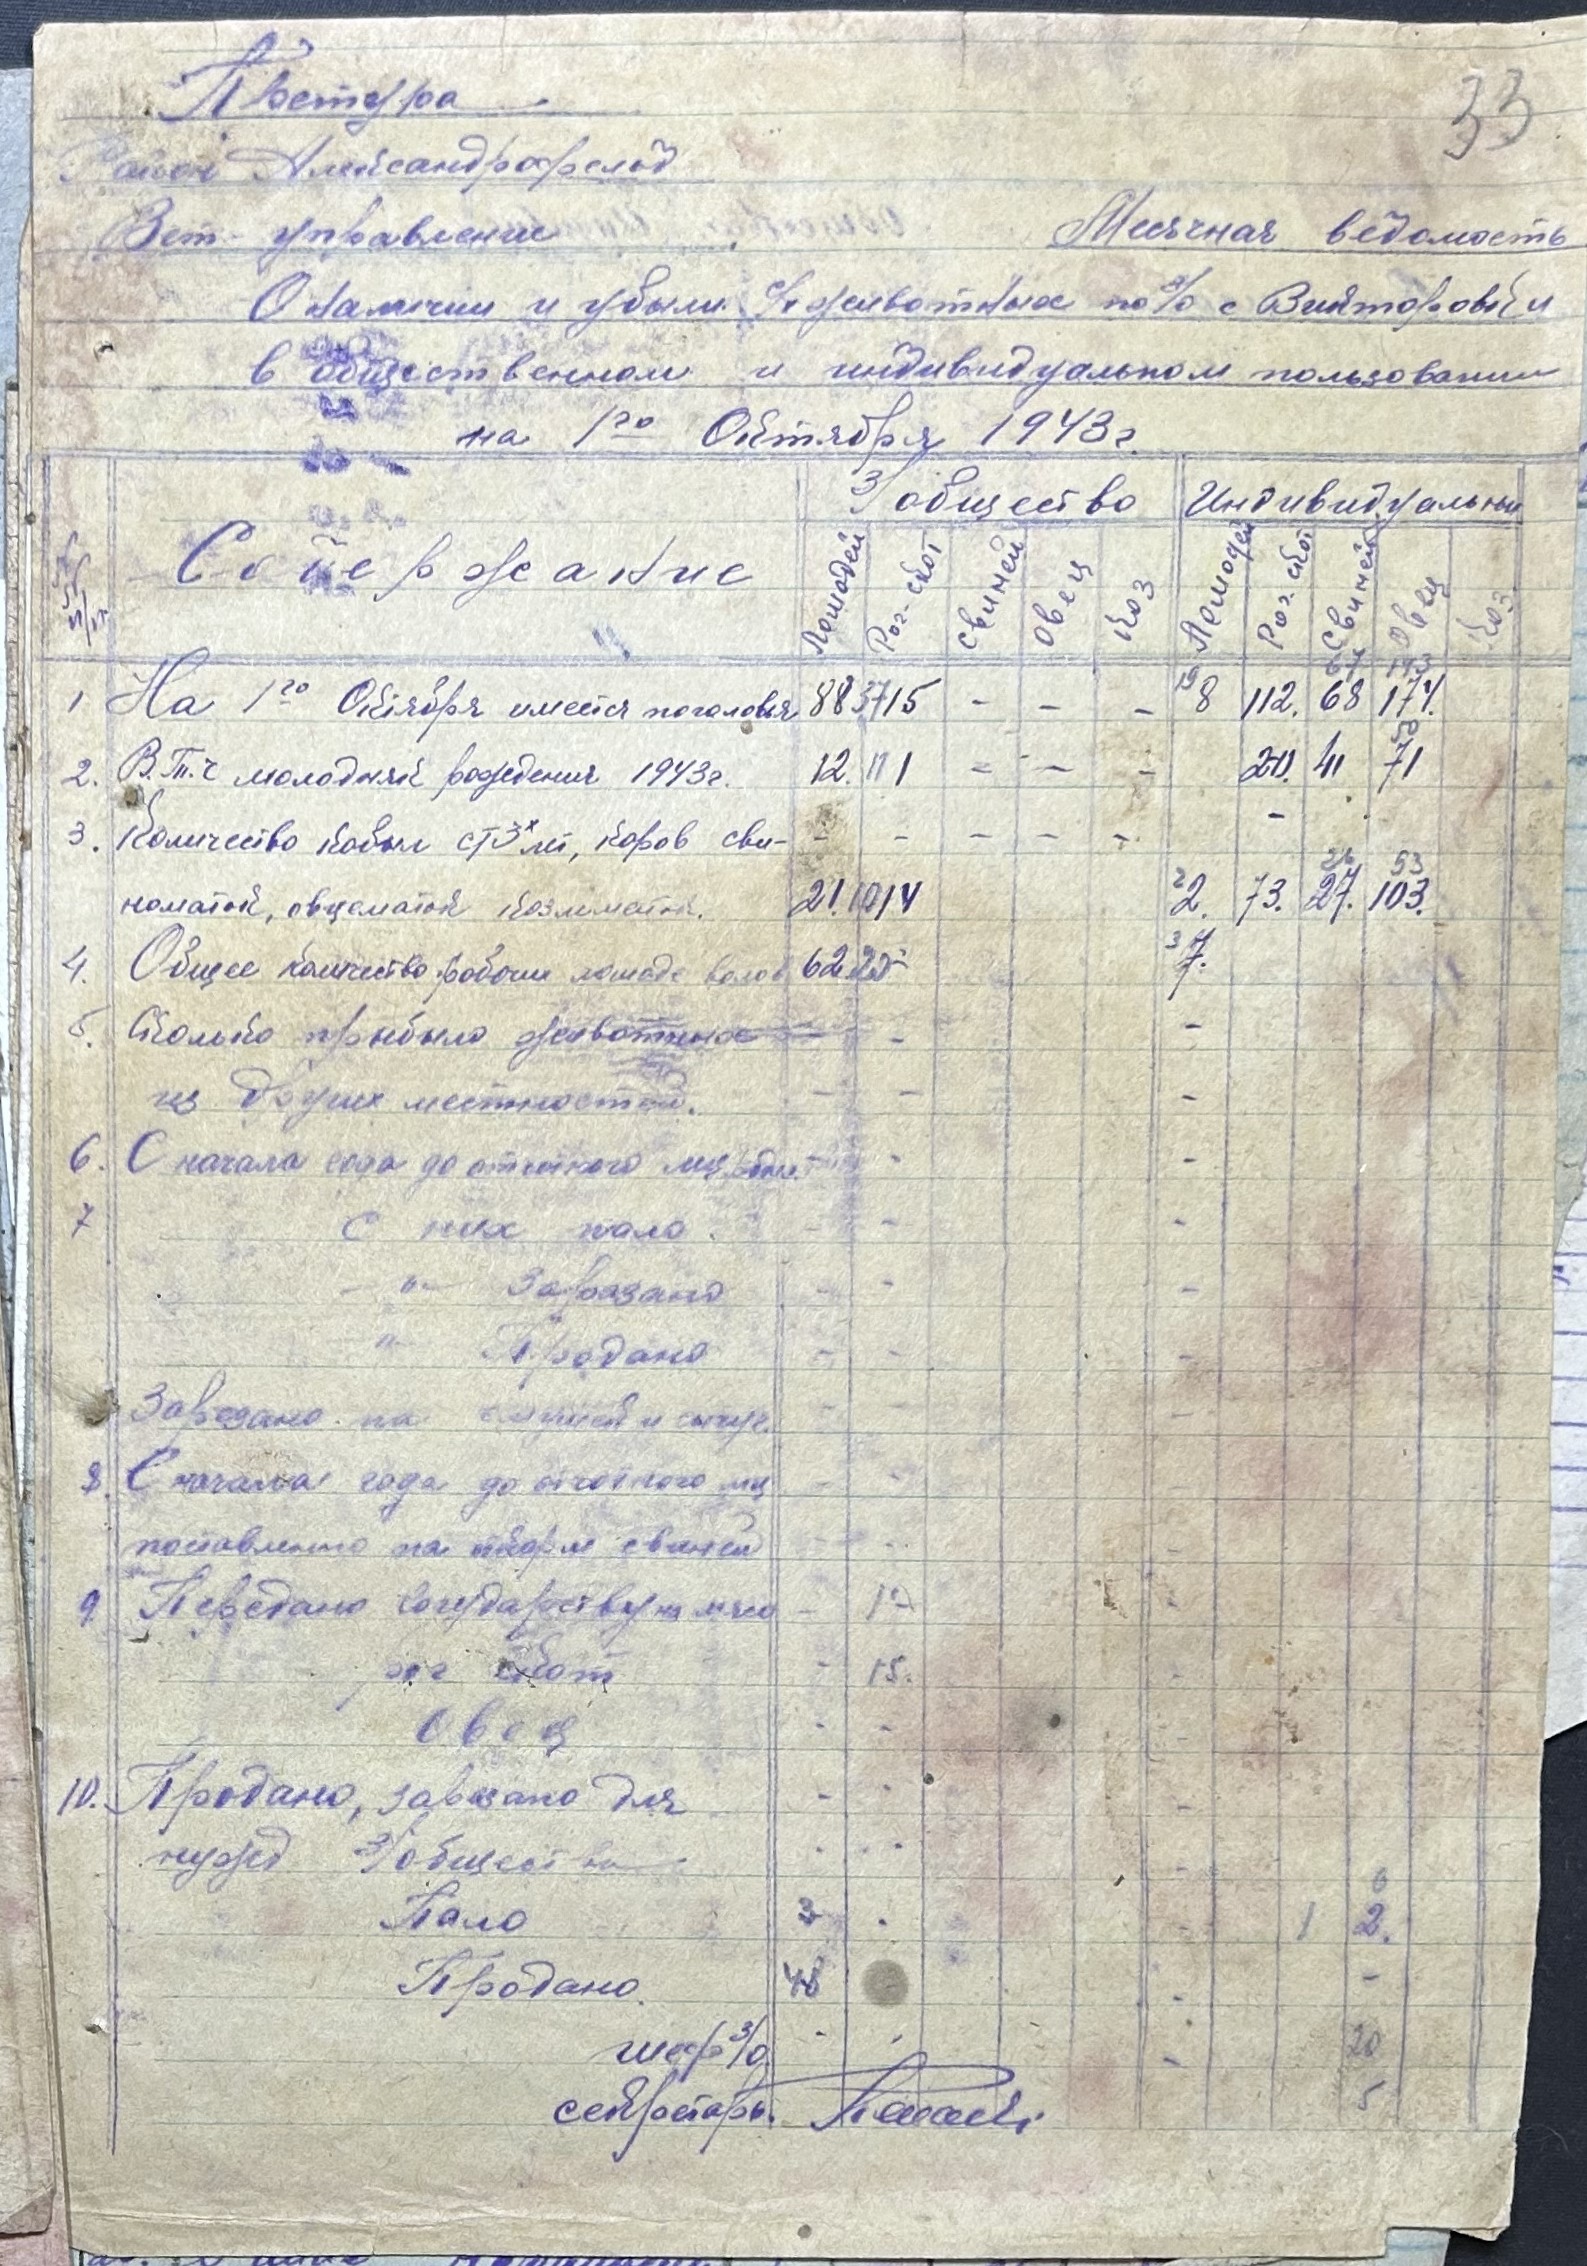 33
Претура
Район Александрофельд
Вет. управление Месячная ведомость
О наличии и убыли животных по з/о с Викторовки
в общественном и индивидуальном пользовании
на 1го Октября 1943г.
З/общество Индивидуальный
№№ п/п Содержание Лошадей Рог-скот свиней Овец Коз Лошадей Рог. скот Свиней Овец Коз
1 На 1го Октября имеется поголовья 88 - - - 8 112. 68 174.
2. В.т.ч молодняк рождения 1943г. 12. 11 1 - - - 20. 41 71
3. Количество кобыл ст 3х лет, коров сви- - - - - - -
номаток, овцематок козематок. 21. 2. 73. 27. 103.
4. Общее количество рабочих лошаде волов 62 7.
5. Сколько прибыло животных - - -
из других местностей. - - -
6. С начала года до отчётного - -
7 С них пало. - - -
-"- Зарезано - - -
" Продано - - -
Зарезано на - -
8. С начала года до отчётного мц - -
поставленно на откорм свиней - -
9 Передано государству на мясо - 17 -
рог скот - 15. -
Овец - - -
10. Продано, зарезано для - - -
нужд з/общества - - -
Пало 1 2.
Продано - -
шеф з/о. - 20
секретарь. 5